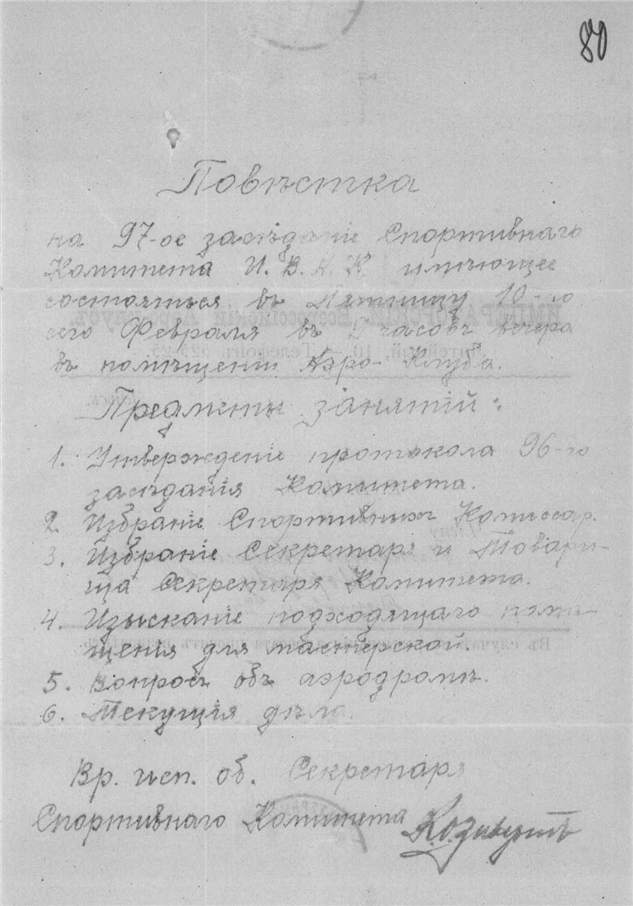 80
Повѣстка
на 97-ое засѣданіе Спортивнаго
Комитета И. В. А. К. имѣющее
состояться въ Пятницу 10-го
сего Февраля въ 9 часовъ вечера
въ помѣщеніи Аэро-Клуба.
Предметы занятій:
1. Утвержденіе протокола 96-го
засѣданія Комитета.
2. Избраніе Спортивныхъ Комиссар.
3. Избраніе Секретаря и Товари-
ща Секретаря Комитета.
4. Изысканіе подходящаго помѣ-
щенія для мастерской.
5. Вопросъ объ аэродромѣ.
6. Текущія дѣла.
Вр. исп. об. Секретаря
Спортивнаго Комитета